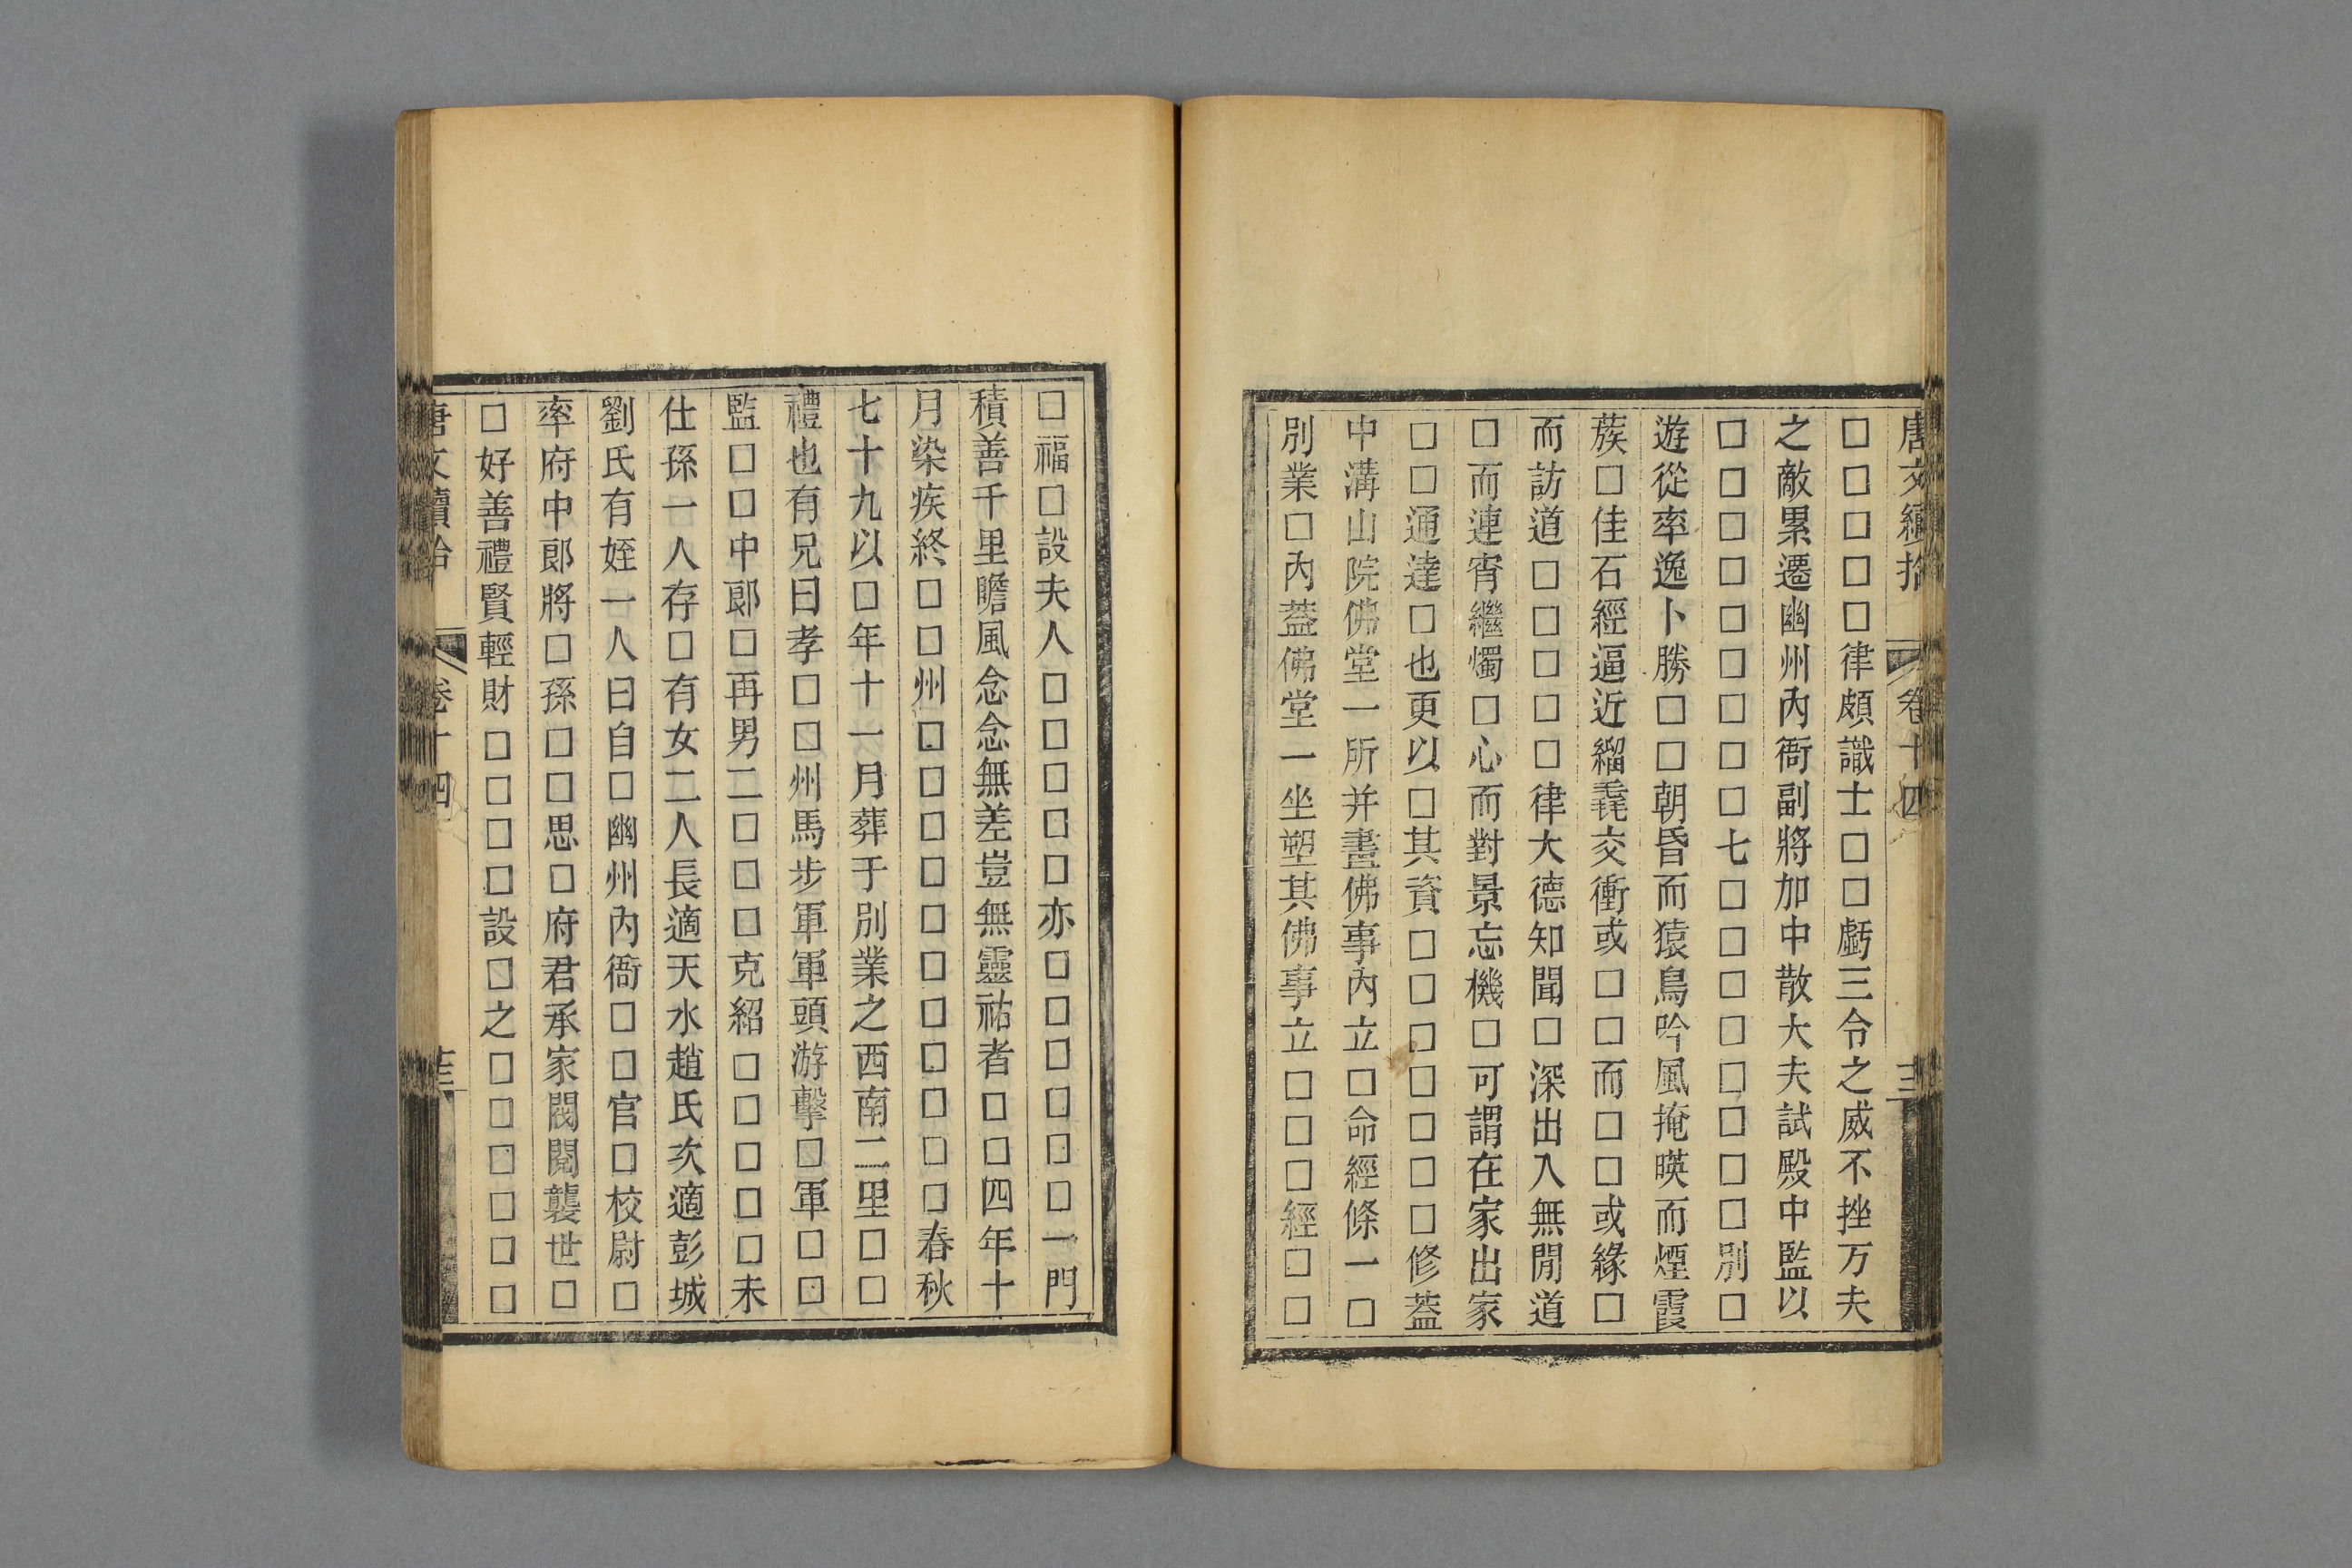 唐文續拾 卷十四 三
□□□□□律頗識士□□虧三令之威不挫万夫
之敵累遷幽州內衙副將加中散大夫試殿中監以
□□□□□□□□□七□□□□□□□□別□
遊從率逸卜勝□□朝昏而猿鳥吟風掩暎而煙霞
蔟□佳石經逼近緇毳交衝或□□而□□或緣□
而訪道□□□□律大德知聞□深出入無閒道
□而連宵繼燭□心而對景忘機□可謂在家出家
□□通達□也更以□其資□□□□□□□修葢
中溝山院佛堂一所并畫佛事內立□命經條一□
別業□內葢佛堂一坐塑其佛事立□□□經□□
□福□設夫人□□□□□亦□□□□□□一門
積善千里瞻風念念無差豈無靈祐者□□四年十
月染疾終□□州□□□□□□□□□□□春秋
七十九以□年十一月葬于別業之西南二里□□
禮也有兄曰孝□□州馬步軍軍頭游擊□軍□□
監□□中郎□再男二□□□克紹□□□□□未
仕孫一人存□有女二人長適天水趙氏次適彭城
劉氏有姪一人曰自□幽州內衙□□官□校尉□
率府中郎將□孫□□思□府君承家閥閱襲世□
□好善禮賢輕財□□□□設□之□□□□□□
唐文續拾 卷十四